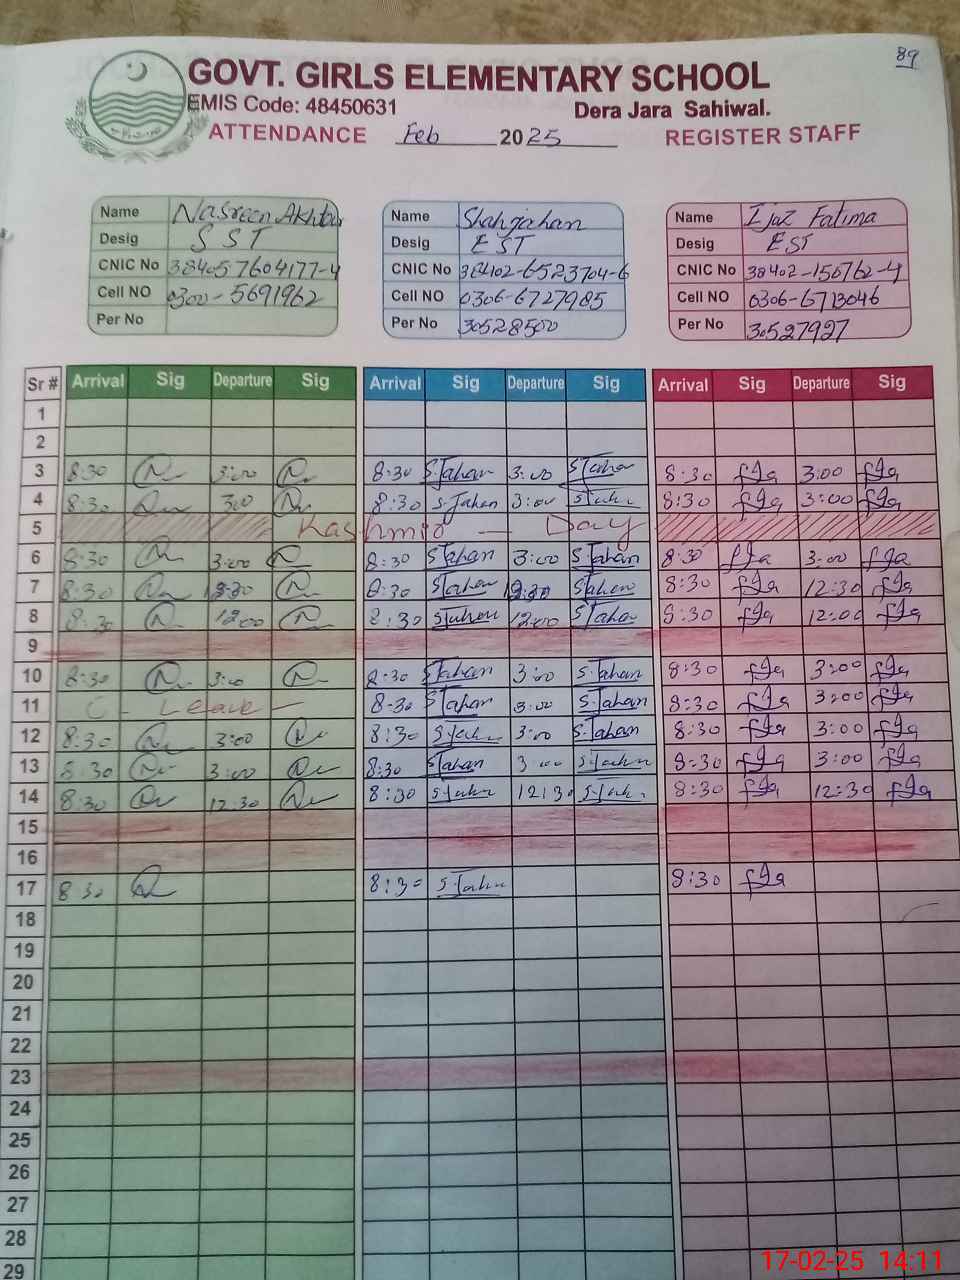 89
GOVT. GIRLS ELEMENTARY SCHOOL
EMIS Code: 48450631 Dera Jara Sahiwal.
ATTENDANCE Feb 2025 REGISTER STAFF
Name Nasreen Akhtar Name Shahjahan Name Ijaz Fatima
Desig SST Desig EST Desig EST
CNIC No 384057604177-4 CNIC No 38402-6523704-6 CNIC No 38402-156762-4
Cell NO 0300-5691962 Cell NO 0306-6727985 Cell NO 0306-6713046
Per No Per No 30528500 Per No 30527927
Sr # Arrival Sig Departure Sig Arrival Sig Departure Sig Arrival Sig Departure Sig
1
2
3 8:30 3:00 8:30 S.Jahan 3:00 S.Jahan 8:30 3:00
4 8:30 3:00 8:30 S.Jahan 3:00 8:30 3:00
5 Kashmir — Day
6 8:30 3:00 8:30 S.Jahan 3:00 S.Jahan 8:30 3:00
7 8:30 8:30 S.Jahan S.Jahan 8:30 12:30
8 8:30 12:00 8:30 S.Jahan 12:00 S.Jahan 8:30 12:00
9
10 8:30 3:00 8:30 S.Jahan 3:00 S.Jahan 8:30 3:00
11 C - Leave - 8:30 S.Jahan 3:00 S.Jahan 8:30 3:00
12 8:30 3:00 8:30 S.Jahan 3:00 S.Jahan 8:30 3:00
13 8:30 3:00 8:30 S.Jahan 3:00 S.Jahan 8:30 3:00
14 8:30 12:30 8:30 S.Jahan 12:30 S.Jahan 8:30 12:30
15
16
17 8:30 8:30 S.Jahan 8:30
18
19
20
21
22
23
24
25
26
27
28
29
17-02-25 14:11